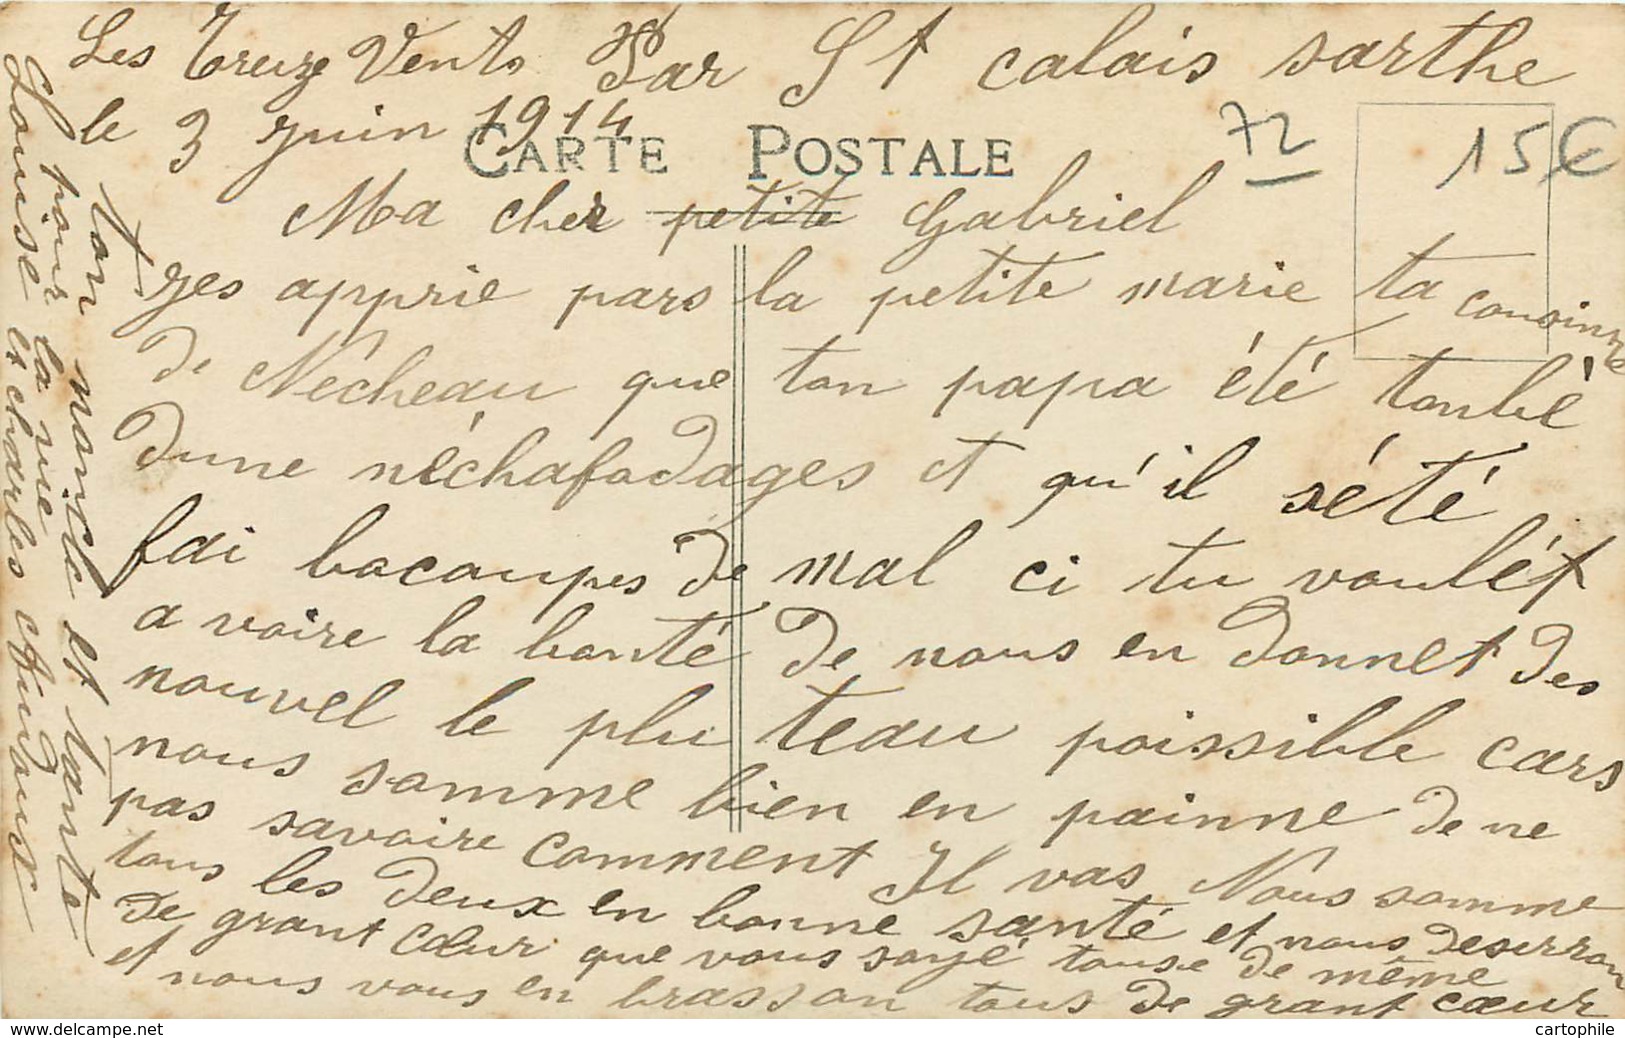 Les Treize Vents Par St calais sarthe
le 3 juin 1914
CARTE POSTALE
72
15€
Ma cher petite Gabriel
Jes apprie pars la petite marie ta cousinne
de Nécheau que ton papa été tonbé
dune néchafodages et qu'il s'été
fai bacoupes de mal ci tu voulét
a voire la bonté de nous en donnet des
nouvel le plu teau poissible cars
nous somme bien en painne de ne
pas savoire comment Il vas Nous somme
tous les deux en bonne santé et nous deserron
de grant cœur que vous soyé touse de même
et nous vous en brasson tous de grant cœur
ton noncle et tante
pour la vie
Louise et charles
cartophile
www.delcampe.net